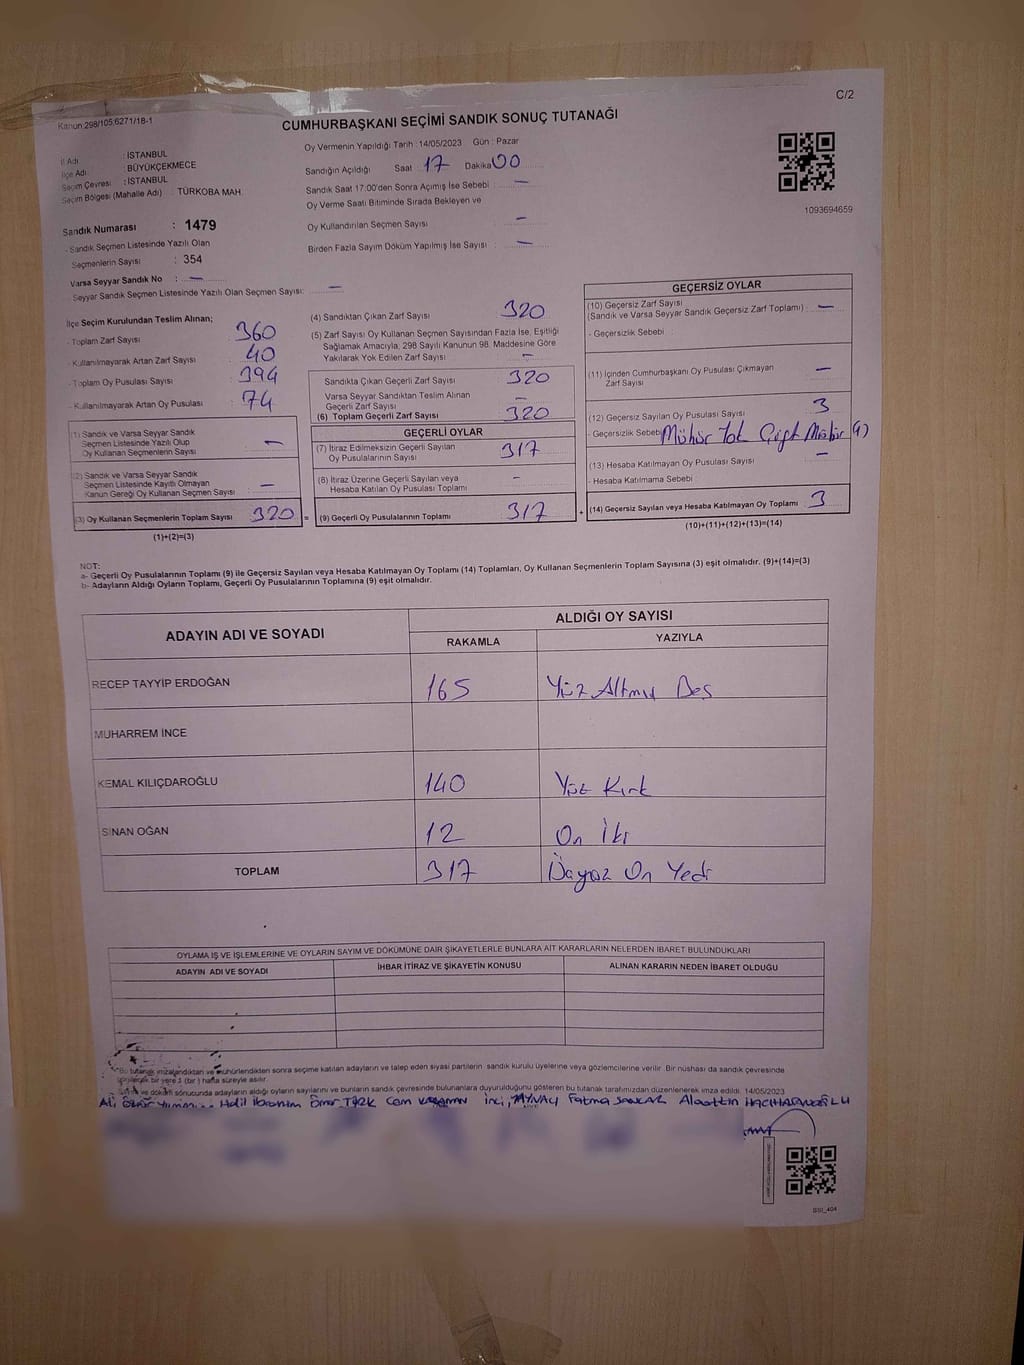 C/2
Kanun 298/105,6271/18-1
CUMHURBAŞKANI SEÇİMİ SANDIK SONUÇ TUTANAĞI
İl Adı : İSTANBUL
İlçe Adı : BÜYÜKÇEKMECE
Seçim Çevresi : İSTANBUL
Seçim Bölgesi (Mahalle Adı) : TÜRKOBA MAH.
Sandık Numarası : 1479
- Sandık Seçmen Listesinde Yazılı Olan
Seçmenlerin Sayısı : 354
Varsa Seyyar Sandık No : —
Seyyar Sandık Seçmen Listesinde Yazılı Olan Seçmen Sayısı: —
Oy Vermenin Yapıldığı Tarih : 14/05/2023 Gün : Pazar
Sandığın Açıldığı Saat 17 Dakika 00
Sandık Saat 17:00'den Sonra Açımış İse Sebebi : —
Oy Verme Saati Bitiminde Sırada Bekleyen ve
Oy Kullandırılan Seçmen Sayısı : —
Birden Fazla Sayım Döküm Yapılmış İse Sayısı : —
1093694659
İlçe Seçim Kurulundan Teslim Alınan;
- Toplam Zarf Sayısı : 360
- Kullanılmayarak Artan Zarf Sayısı : 40
- Toplam Oy Pusulası Sayısı : 394
- Kullanılmayarak Artan Oy Pusulası : 74
(1) Sandık ve Varsa Seyyar Sandık
Seçmen Listesinde Yazılı Olup
Oy Kullanan Seçmenlerin Sayısı : —
(2) Sandık ve Varsa Seyyar Sandık
Seçmen Listesinde Kayıtlı Olmayan
Kanun Gereği Oy Kullanan Seçmen Sayısı : —
(3) Oy Kullanan Seçmenlerin Toplam Sayısı 320
(1)+(2)=(3)
(4) Sandıktan Çıkan Zarf Sayısı : 320
(5) Zarf Sayısı Oy Kullanan Seçmen Sayısından Fazla İse, Eşitliği
Sağlamak Amacıyla, 298 Sayılı Kanunun 98. Maddesine Göre
Yakılarak Yok Edilen Zarf Sayısı : —
Sandıkta Çıkan Geçerli Zarf Sayısı : 320
Varsa Seyyar Sandıktan Teslim Alınan
Geçerli Zarf Sayısı : —
(6) Toplam Geçerli Zarf Sayısı : 320
GEÇERLİ OYLAR
(7) İtiraz Edilmeksizin Geçerli Sayılan
Oy Pusulalarının Sayısı : 317
(8) İtiraz Üzerine Geçerli Sayılan veya
Hesaba Katılan Oy Pusulası Toplamı : —
= (9) Geçerli Oy Pusulalarının Toplamı : 317
GEÇERSİZ OYLAR
(10) Geçersiz Zarf Sayısı
(Sandık ve Varsa Seyyar Sandık Geçersiz Zarf Toplamı) : —
- Geçersizlik Sebebi :
(11) İçinden Cumhurbaşkanı Oy Pusulası Çıkmayan
Zarf Sayısı : —
(12) Geçersiz Sayılan Oy Pusulası Sayısı : 3
- Geçersizlik Sebebi Mühür Yok Çift Mühür
(13) Hesaba Katılmayan Oy Pusulası Sayısı : —
- Hesaba Katılmama Sebebi :
+ (14) Geçersiz Sayılan veya Hesaba Katılmayan Oy Toplamı : 3
(10)+(11)+(12)+(13)=(14)
NOT:
a- Geçerli Oy Pusulalarının Toplamı (9) ile Geçersiz Sayılan veya Hesaba Katılmayan Oy Toplamı (14) Toplamları, Oy Kullanan Seçmenlerin Toplam Sayısına (3) eşit olmalıdır. (9)+(14)=(3)
b- Adayların Aldığı Oyların Toplamı, Geçerli Oy Pusulalarının Toplamına (9) eşit olmalıdır.
ADAYIN ADI VE SOYADI
ALDIĞI OY SAYISI
RAKAMLA YAZIYLA
RECEP TAYYİP ERDOĞAN 165 Yüz Altmış Beş
MUHARREM İNCE
KEMAL KILIÇDAROĞLU 140 Yüz Kırk
SİNAN OĞAN 12 On İki
TOPLAM 317 Üçyüz On Yedi
OYLAMA İŞ VE İŞLEMLERİNE VE OYLARIN SAYIM VE DÖKÜMÜNE DAİR ŞİKAYETLERLE BUNLARA AİT KARARLARIN NELERDEN İBARET BULUNDUKLARI
ADAYIN ADI VE SOYADI İHBAR İTİRAZ VE ŞİKAYETİN KONUSU ALINAN KARARIN NEDEN İBARET OLDUĞU
Bu tutanak imzalandıktan ve mühürlendikten sonra seçime katılan adayların ve talep eden siyasi partilerin sandık kurulu üyelerine veya gözlemcilerine verilir. Bir nüshası da sandık çevresinde
görülecek bir yere 1 (bir) hafta süreyle asılır.
Sayım ve döküm sonucunda adayların aldığı oyların sayılarını ve bunların sandık çevresinde bulunanlara duyurulduğunu gösteren bu tutanak tarafımızdan düzenlenerek imza edildi. 14/05/2023
Ali Halil İbrahim Ömer TÜRK Cem İnci Fatma Alaattin HACIHAFIZOĞLU
SSI_404